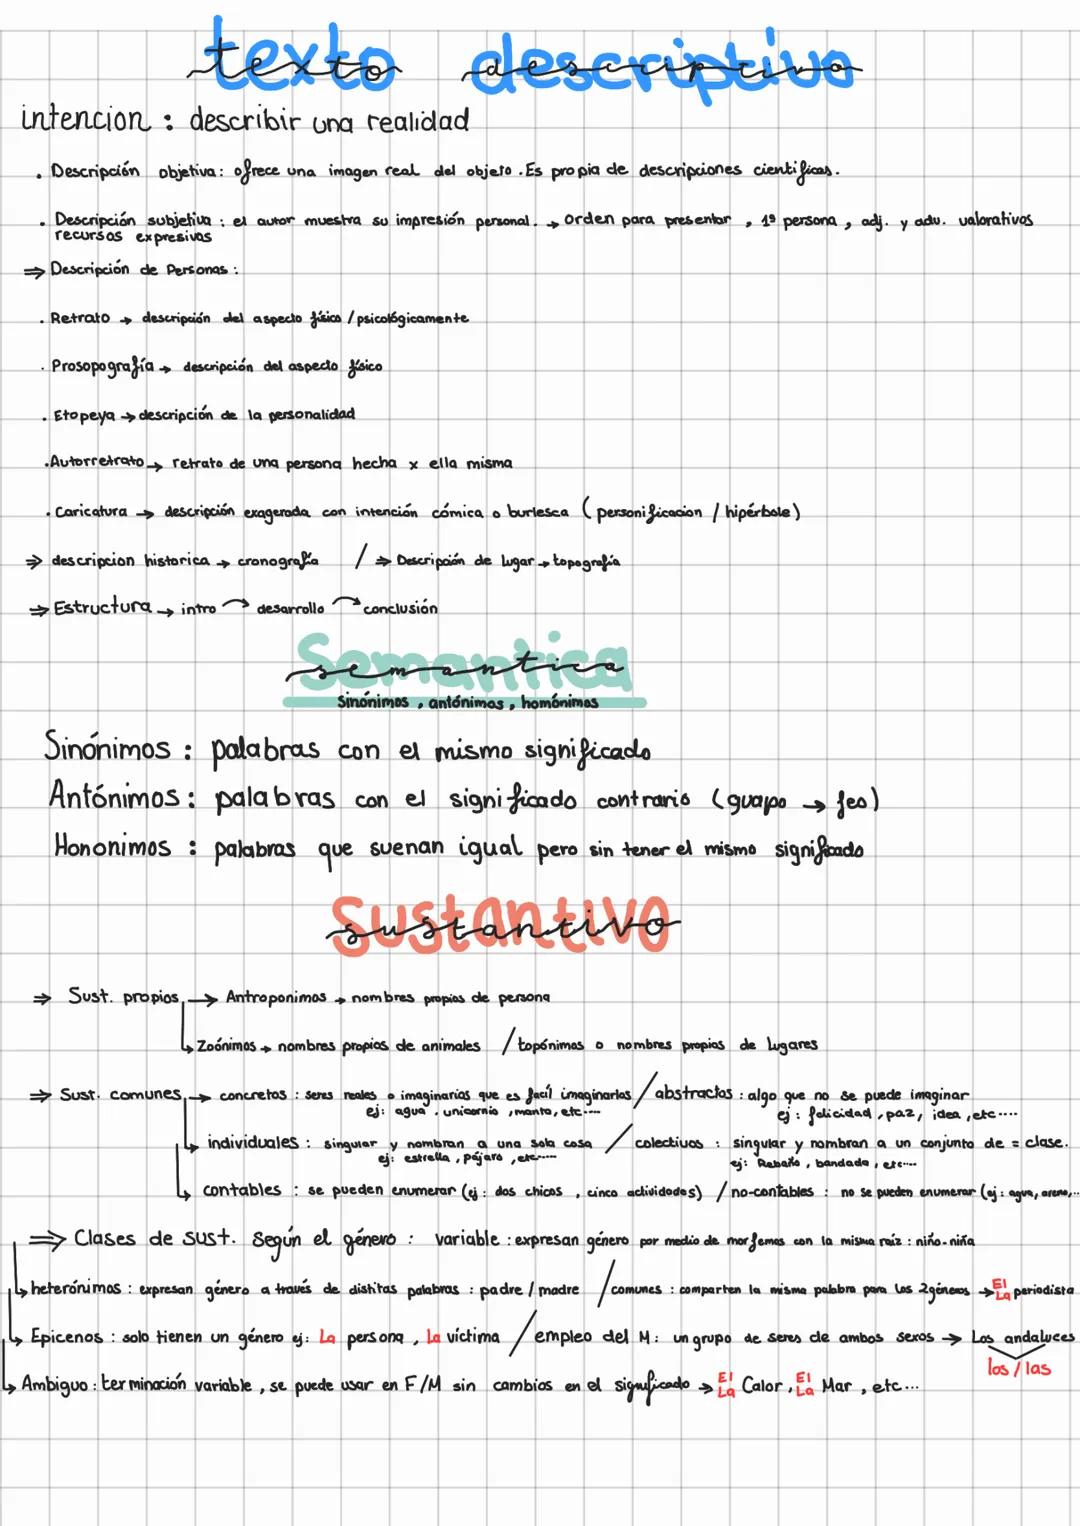 texto descriptivo
intencion : describir una realidad
. Descripción objetiva : ofrece una imagen real del objeto . Es propia de descripciones cientificas .
. Descripción subjetiva : el autor muestra su impresión personal. → orden para presentar , 1ª persona , adj. y adv. valorativos
recursos expresivos
⇒ Descripción de Personas :
. Retrato → descripción del aspecto físico / psicológicamente
. Prosopografía → descripción del aspecto físico
. Etopeya → descripción de la personalidad
. Autorretrato → retrato de una persona hecha x ella misma
. Caricatura → descripción exagerada con intención cómica o burlesca ( personificacion / hipérbole )
⇒ descripcion historica → cronografía / ⇒ Descripción de lugar → topografía
⇒ Estructura → intro → desarrollo → conclusión
Semantica
Sinónimos , antónimos , homónimos
Sinónimos : palabras con el mismo significado
Antónimos : palabras con el significado contrario ( guapo → feo )
Hononimos : palabras que suenan igual pero sin tener el mismo significado
Sustantivo
⇒ Sust. propios → Antroponimos → nombres propios de persona
↳ Zoónimos → nombres propios de animales / topónimos o nombres propios de lugares
⇒ Sust. comunes → concretos : seres reales o imaginarios que es facíl imaginarlos / abstractos : algo que no se puede imaginar
ej : agua , unicornio , manta , etc.... ej : felicidad , paz , idea , etc....
↳ individuales : singular y nombran a una sola cosa / colectivos : singular y nombran a un conjunto de = clase.
ej : estrella , pájaro , etc.... ej : Rebaño , bandada , etc....
↳ contables : se pueden enumerar ( ej : dos chicos , cinco actividades ) / no-contables : no se pueden enumerar ( ej : agua , arena , ..
⇒ Clases de sust. Según el género : variable : expresan género por medio de morfemas con la misma raíz : niño-niña
↳ heterónimos : expresan género a través de distitas palabras : padre / madre / comunes : comparten la misma palabra para los 2 géneros → El La periodista
↳ Epicenos : solo tienen un género ej : La persona , La víctima / empleo del M : un grupo de seres de ambos sexos → Los andaluces
los / las
↳ Ambiguo : terminación variable , se puede usar en F/M sin cambios en el significado → El La Calor , El La Mar , etc...